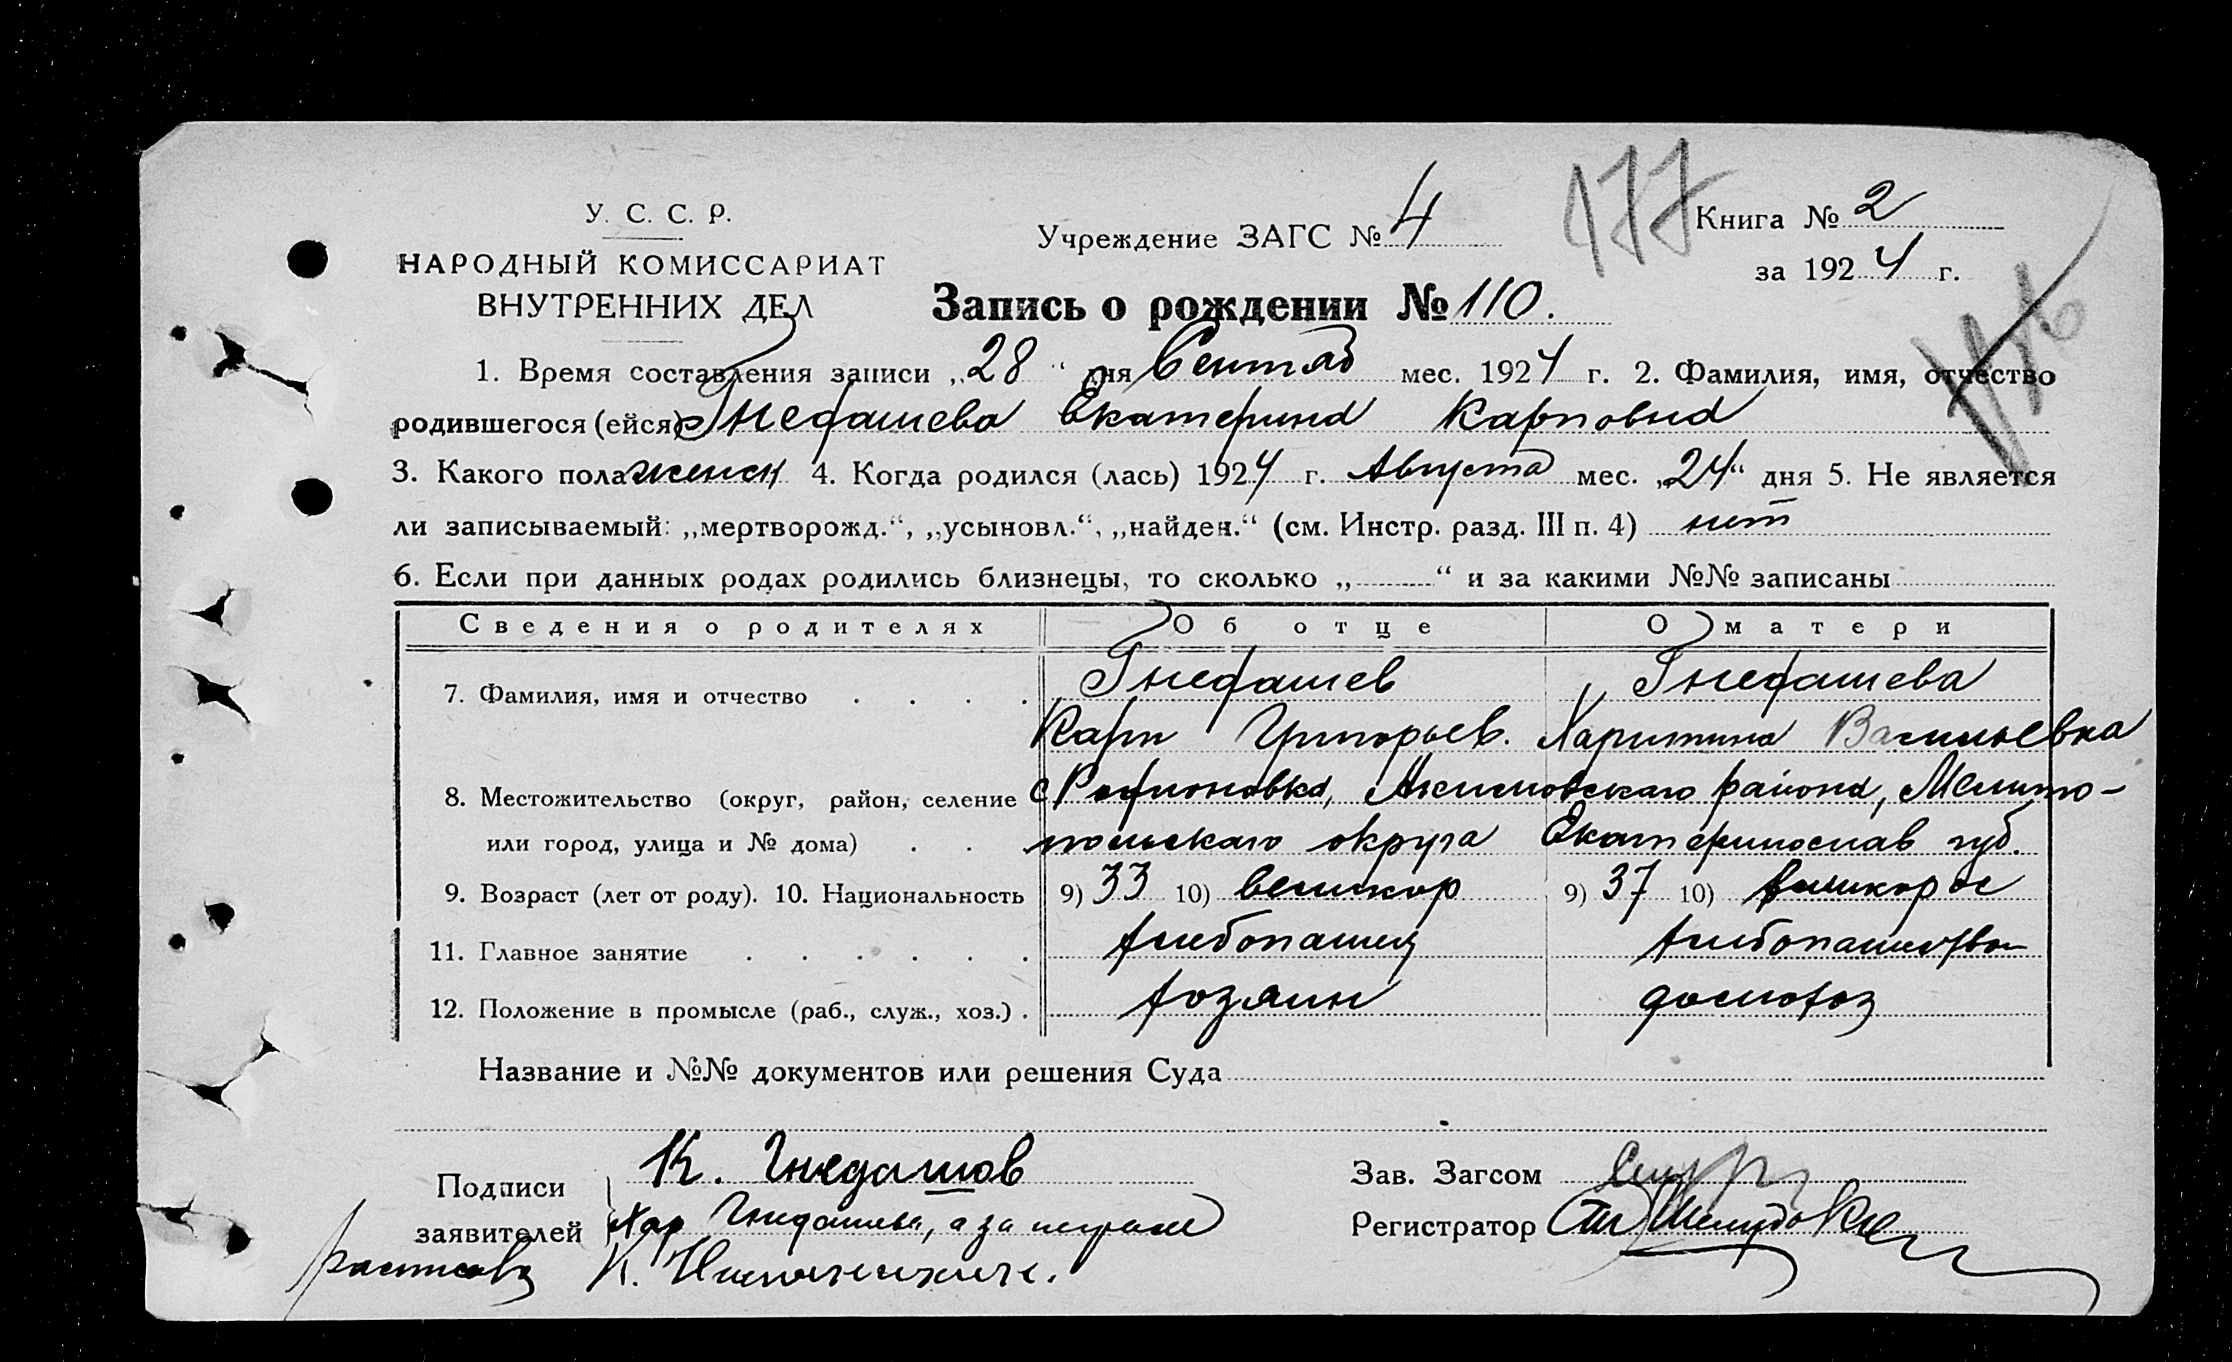 177
У. С. С. Р.
Учреждение ЗАГС № 4
Книга № 2
НАРОДНЫЙ КОМИССАРИАТ
за 1924 г.
ВНУТРЕННИХ ДЕЛ
Запись о рождении № 110.
1. Время составления записи „28“ дня Сентяб мес. 1924 г. 2. Фамилия, имя, отчество
родившегося (ейся) Гнедашева Екатерина Карповна
3. Какого пола женск 4. Когда родился (лась) 1924 г. Августа мес. „24“ дня 5. Не является
ли записываемый: „мертворожд.“, „усыновл.“, „найден.“ (см. Инстр. разд. III п. 4) нет
6. Если при данных родах родились близнецы, то сколько „ “ и за какими №№ записаны
Сведения о родителях Об отце О матери
7. Фамилия, имя и отчество Гнедашев Гнедашева
Карп Григорьев. Харитина Васильевна
8. Местожительство (округ, район, селение с Акимовскаго района, Мелито-
или город, улица и № дома) польскаго округа Екатеринослав губ.
9. Возраст (лет от роду). 10. Национальность 9) 33 10) великор 9) 37 10) великорос
11. Главное занятие хлебопашец хлебопашество
12. Положение в промысле (раб., служ., хоз.) хозяин домохоз
Название и №№ документов или решения Суда
Подписи К. Гнедашов
Зав. Загсом
заявителей Хар Гнедашева, а за неграм
Регистратор
расписавs К.